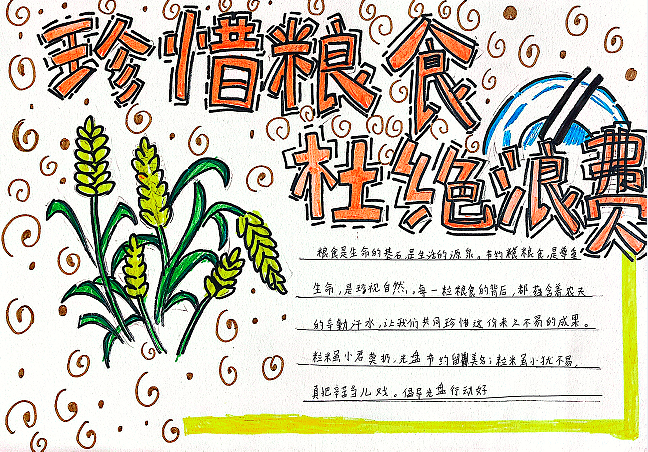 珍惜粮食
杜绝浪费
粮食是生命的基石,是生活的源泉。节约粮食,是尊重
生命,是珍视自然,每一粒粮食的背后,都蕴含着农夫
的辛勤汗水,让我们共同珍惜这份来之不易的成果。
粒米虽小君莫扔,光盘节约留美名;粒米虽小犹不易,
莫把辛苦当儿戏。倡导光盘行动好